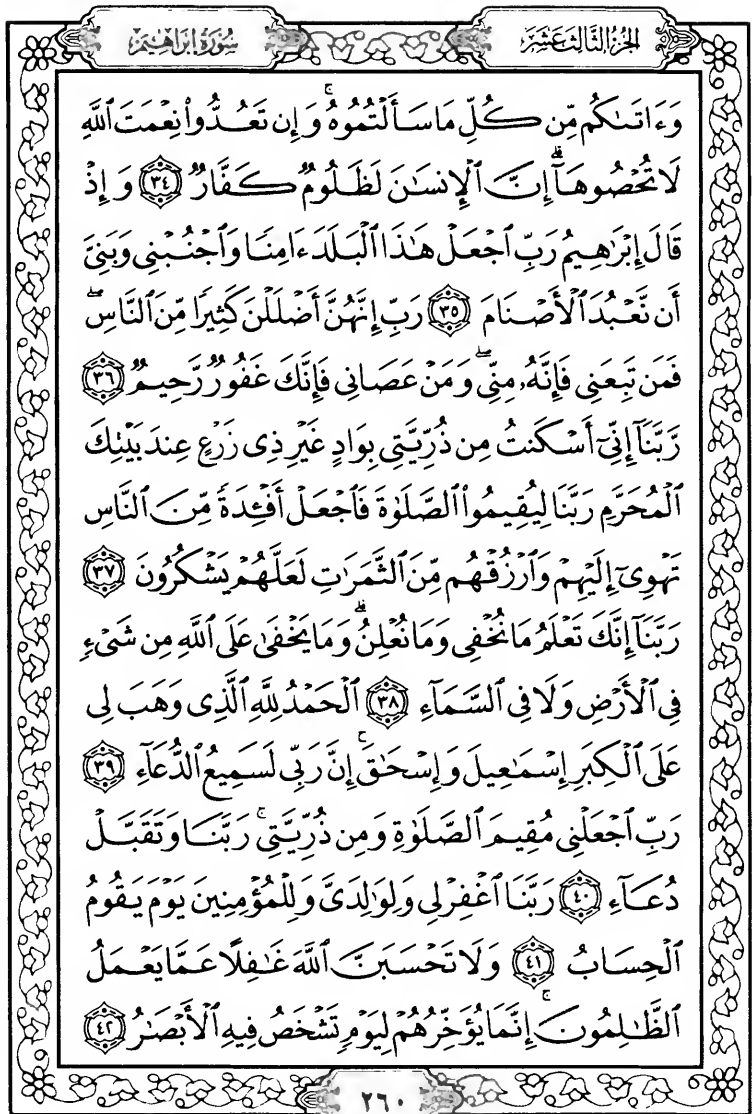 الجزء الثالث عشر
سورة إبراهيم
وَءَاتَىٰكُم مِّن كُلِّ مَا سَأَلْتُمُوهُ ۚ وَإِن تَعُدُّوا۟ نِعْمَتَ ٱللَّهِ
لَا تُحْصُوهَآ ۗ إِنَّ ٱلْإِنسَٰنَ لَظَلُومٌ كَفَّارٌ ﴿٣٤﴾ وَإِذْ
قَالَ إِبْرَٰهِيمُ رَبِّ ٱجْعَلْ هَٰذَا ٱلْبَلَدَ ءَامِنًا وَٱجْنُبْنِى وَبَنِىَّ
أَن نَّعْبُدَ ٱلْأَصْنَامَ ﴿٣٥﴾ رَبِّ إِنَّهُنَّ أَضْلَلْنَ كَثِيرًا مِّنَ ٱلنَّاسِ ۖ
فَمَن تَبِعَنِى فَإِنَّهُۥ مِنِّى ۖ وَمَنْ عَصَانِى فَإِنَّكَ غَفُورٌ رَّحِيمٌ ﴿٣٦﴾
رَّبَّنَآ إِنِّىٓ أَسْكَنتُ مِن ذُرِّيَّتِى بِوَادٍ غَيْرِ ذِى زَرْعٍ عِندَ بَيْتِكَ
ٱلْمُحَرَّمِ رَبَّنَا لِيُقِيمُوا۟ ٱلصَّلَوٰةَ فَٱجْعَلْ أَفْـِٔدَةً مِّنَ ٱلنَّاسِ
تَهْوِىٓ إِلَيْهِمْ وَٱرْزُقْهُم مِّنَ ٱلثَّمَرَٰتِ لَعَلَّهُمْ يَشْكُرُونَ ﴿٣٧﴾
رَبَّنَآ إِنَّكَ تَعْلَمُ مَا نُخْفِى وَمَا نُعْلِنُ ۗ وَمَا يَخْفَىٰ عَلَى ٱللَّهِ مِن شَىْءٍ
فِى ٱلْأَرْضِ وَلَا فِى ٱلسَّمَآءِ ﴿٣٨﴾ ٱلْحَمْدُ لِلَّهِ ٱلَّذِى وَهَبَ لِى
عَلَى ٱلْكِبَرِ إِسْمَٰعِيلَ وَإِسْحَٰقَ ۚ إِنَّ رَبِّى لَسَمِيعُ ٱلدُّعَآءِ ﴿٣٩﴾
رَبِّ ٱجْعَلْنِى مُقِيمَ ٱلصَّلَوٰةِ وَمِن ذُرِّيَّتِى ۚ رَبَّنَا وَتَقَبَّلْ
دُعَآءِ ﴿٤٠﴾ رَبَّنَا ٱغْفِرْ لِى وَلِوَٰلِدَىَّ وَلِلْمُؤْمِنِينَ يَوْمَ يَقُومُ
ٱلْحِسَابُ ﴿٤١﴾ وَلَا تَحْسَبَنَّ ٱللَّهَ غَٰفِلًا عَمَّا يَعْمَلُ
ٱلظَّٰلِمُونَ ۚ إِنَّمَا يُؤَخِّرُهُمْ لِيَوْمٍ تَشْخَصُ فِيهِ ٱلْأَبْصَٰرُ ﴿٤٢﴾
٢٦٠